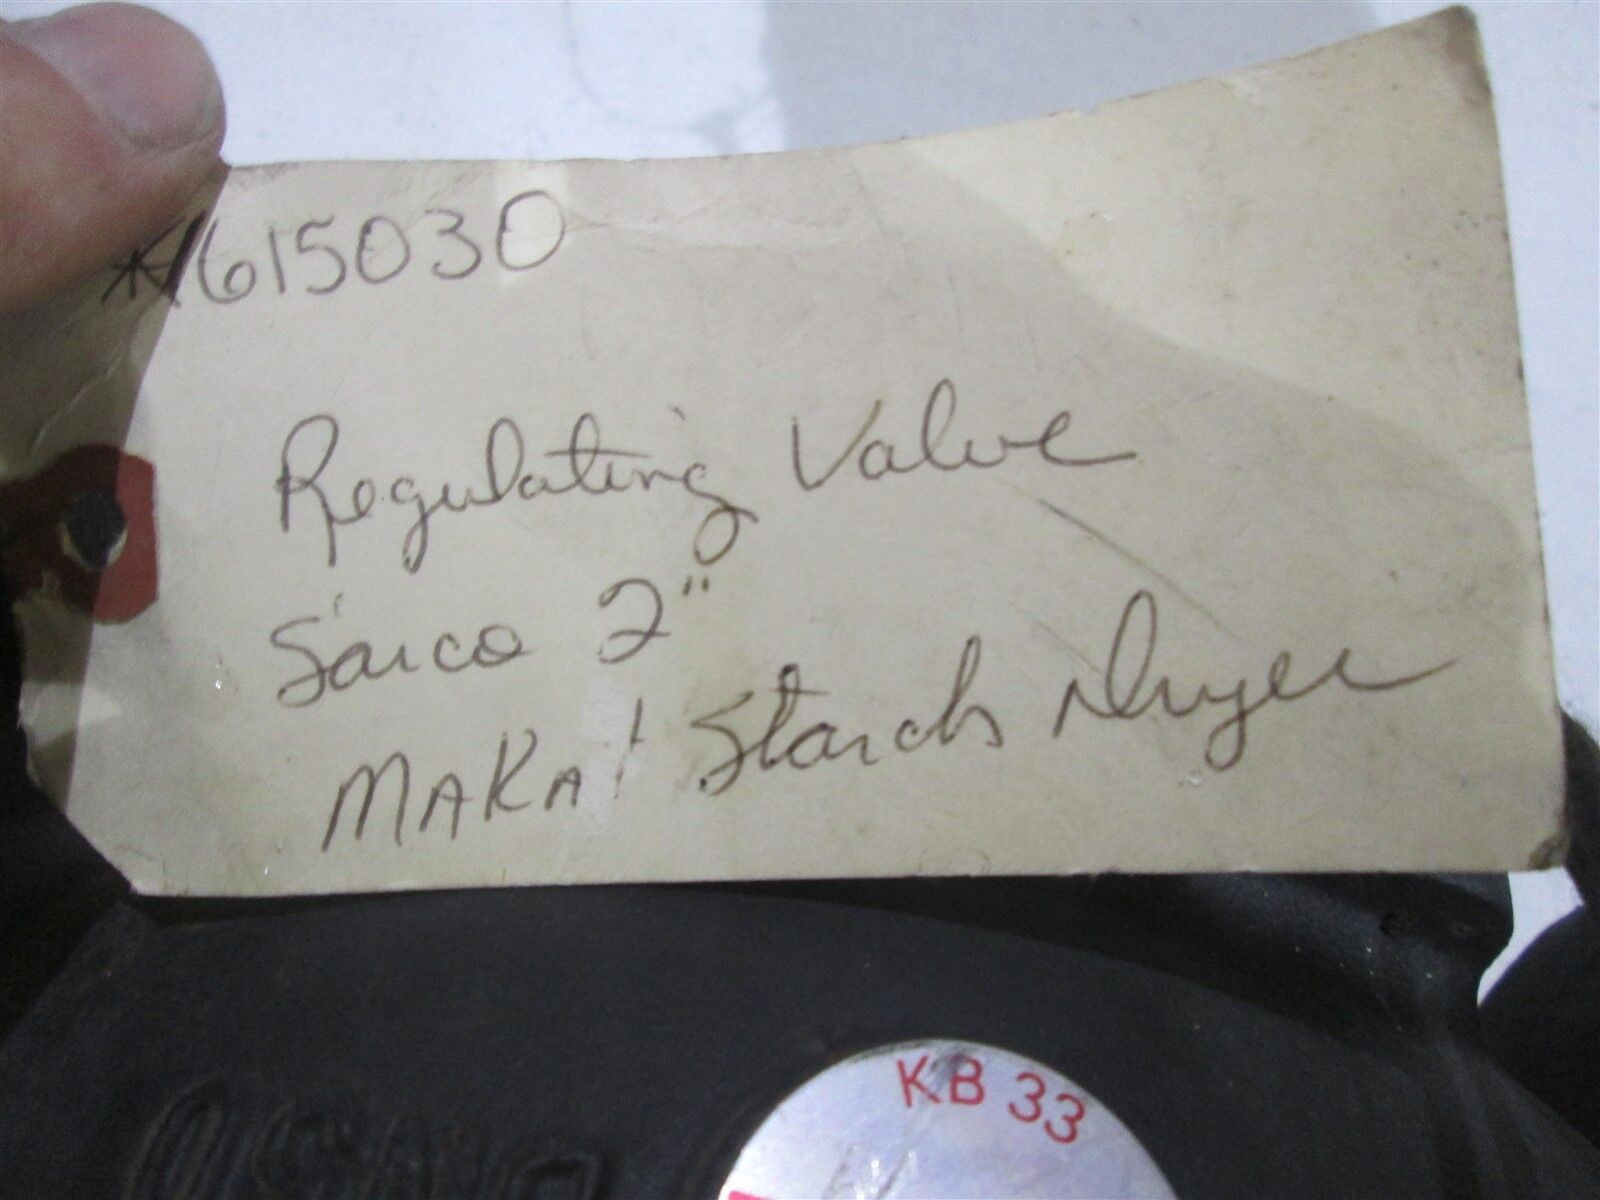 *1615030
Regulating Valve
Sarco 2"
MAKAT Starch Dryer
KB 33